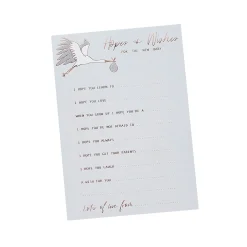 Hopes & Wishes
FOR THE NEW BABY
I HOPE YOU LEARN TO
I HOPE YOU LOVE
WHEN YOU GROW UP I HOPE YOU'RE A
I HOPE YOU'RE NOT AFRAID OF
I HOPE YOU ALWAYS
I HOPE YOU GET YOUR PARENTS
I HOPE YOU LAUGH
I WISH FOR YOU
Lots of love from